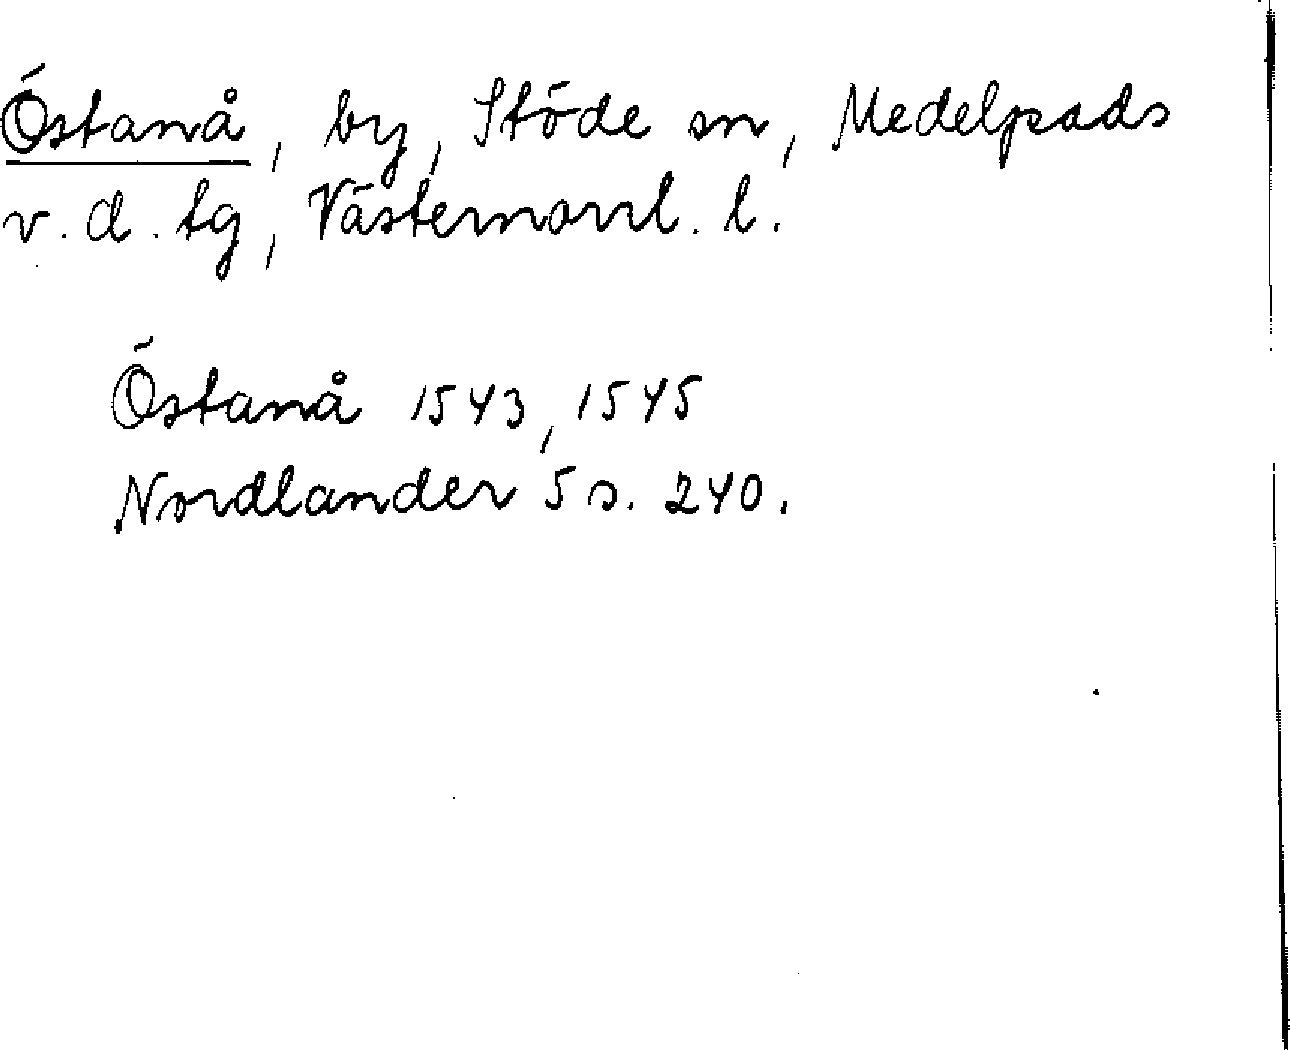 Östanå, by, Stöde sn, Medelpads
v. d. tg, Västernorrl. l.
Östanå 1543, 1545
Nordlander 5 s. 240.